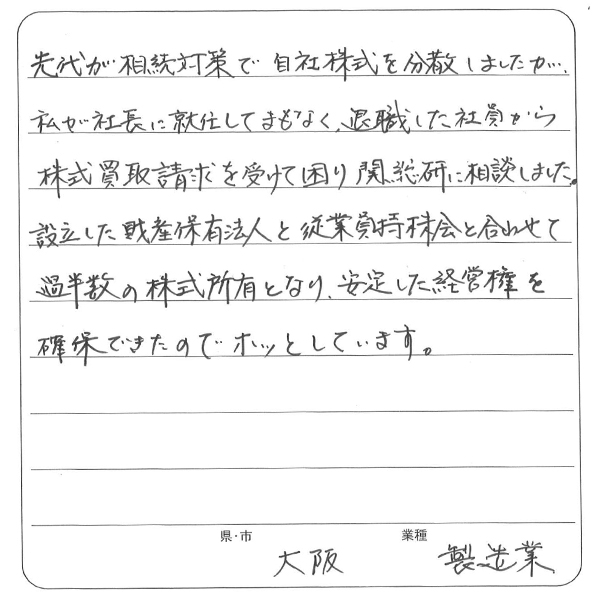 先代が相続対策で自社株式を分散しましたが、
私が社長に就任してまもなく、退職した社員から
株式買取請求を受けて困り関総研に相談しました。
設立した財産保有法人と従業員持株会と合わせて
過半数の株式所有となり、安定した経営権を
確保できたのでホッとしています。
県・市 大阪 業種 製造業